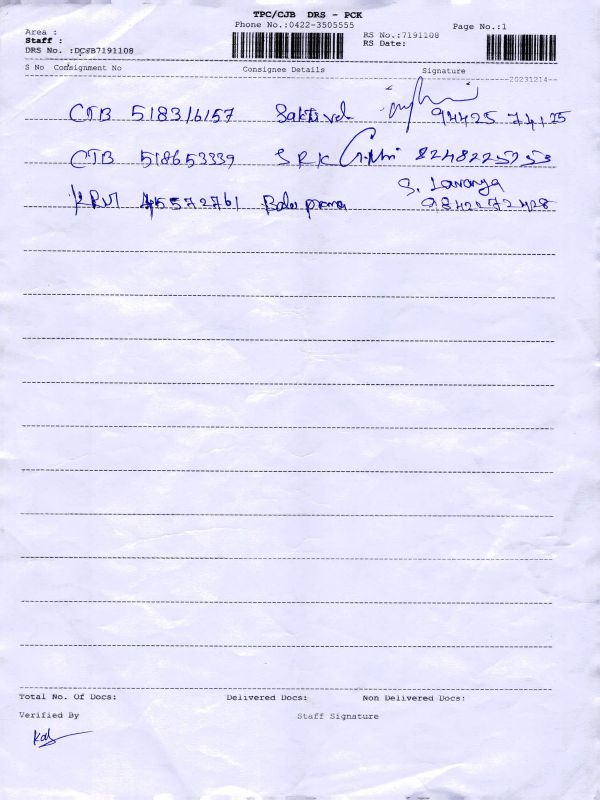 TPC/CJB DRS - PCK
Phone No.:0422-3505555
Page No.:1
Area :
Staff :
DRS No. :DCJB7191108
RS No.:7191108
RS Date:
S No Consignment No Consignee Details Signature
20231214
CJB 518316157 Saktivel 94425 74125
CJB 518653339 SRK 8248225253
45572761 S. Lavanya
Total No. Of Docs: Delivered Docs: Non Delivered Docs:
Verified By Staff Signature